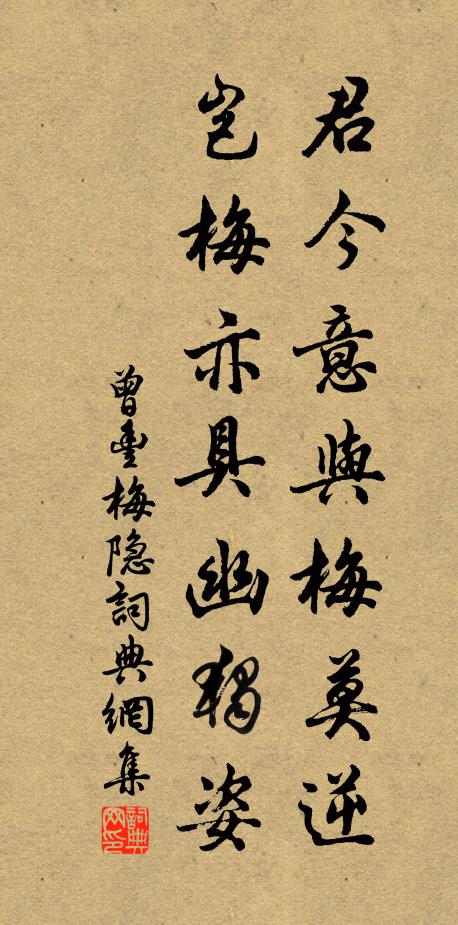 君今意與梅莫逆
豈梅亦具幽獨姿
曾豐梅隐詞典網集
詞典網印